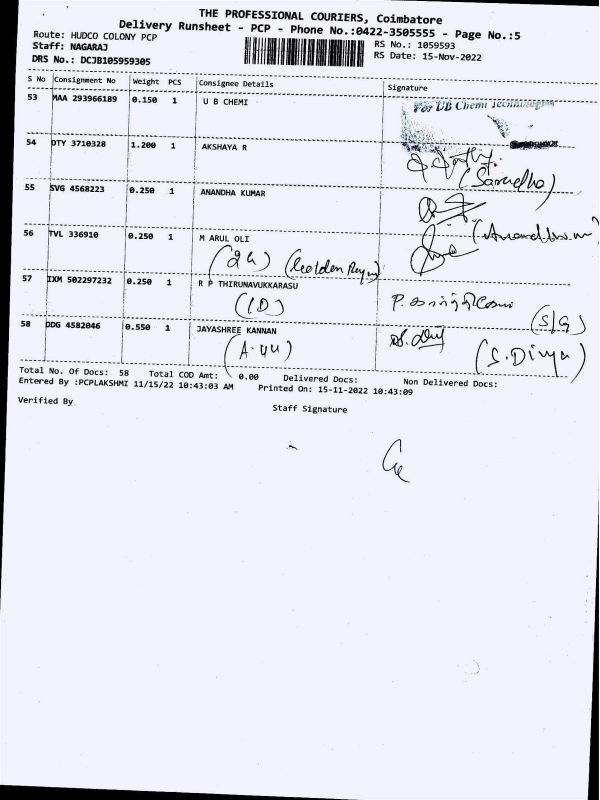 THE PROFESSIONAL COURIERS, Coimbatore
Delivery Runsheet - PCP - Phone No.:0422-3505555 - Page No.:5
Route: HUDCO COLONY PCP RS No.: 1059593
Staff: NAGARAJ RS Date: 15-Nov-2022
DRS No.: DCJB105959305
S No Consignment No Weight PCS Consignee Details Signature
53 MAA 293966189 0.150 1 U B CHEMI For UB Chemi
54 DTY 3710328 1.200 1 AKSHAYA R
(Saradha)
55 SVG 4568223 0.250 1 ANANDHA KUMAR
56 TVL 336910 0.250 1 M ARUL OLI
(Golden Rayn)
57 IXM 502297232 0.250 1 R P THIRUNAVUKKARASU
(ID) (S/G)
58 DDG 4582046 0.550 1 JAYASHREE KANNAN
(S.Divya)
Total No. Of Docs: 58 Total COD Amt: 0.00 Delivered Docs: Non Delivered Docs:
Entered By :PCPLAKSHMI 11/15/22 10:43:03 AM Printed On: 15-11-2022 10:43:09
Verified By Staff Signature